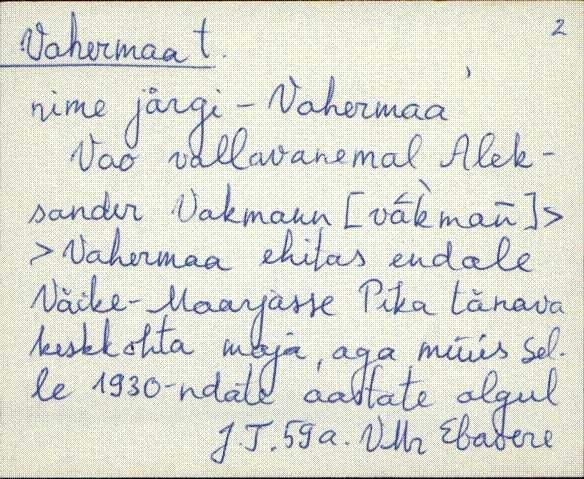 2
Vahermaa t.
nime järgi – Vahermaa
Vao vallavanemal Alek-
sander Vakmann [vák̀mań]>
>Vahermaa ehitas endale
Väike-Maarjasse Pika tänava
keskkohta maja, aga müüs sel-
le 1930-ndate aastate algul
J.T. 59 a. VMr Ebavere